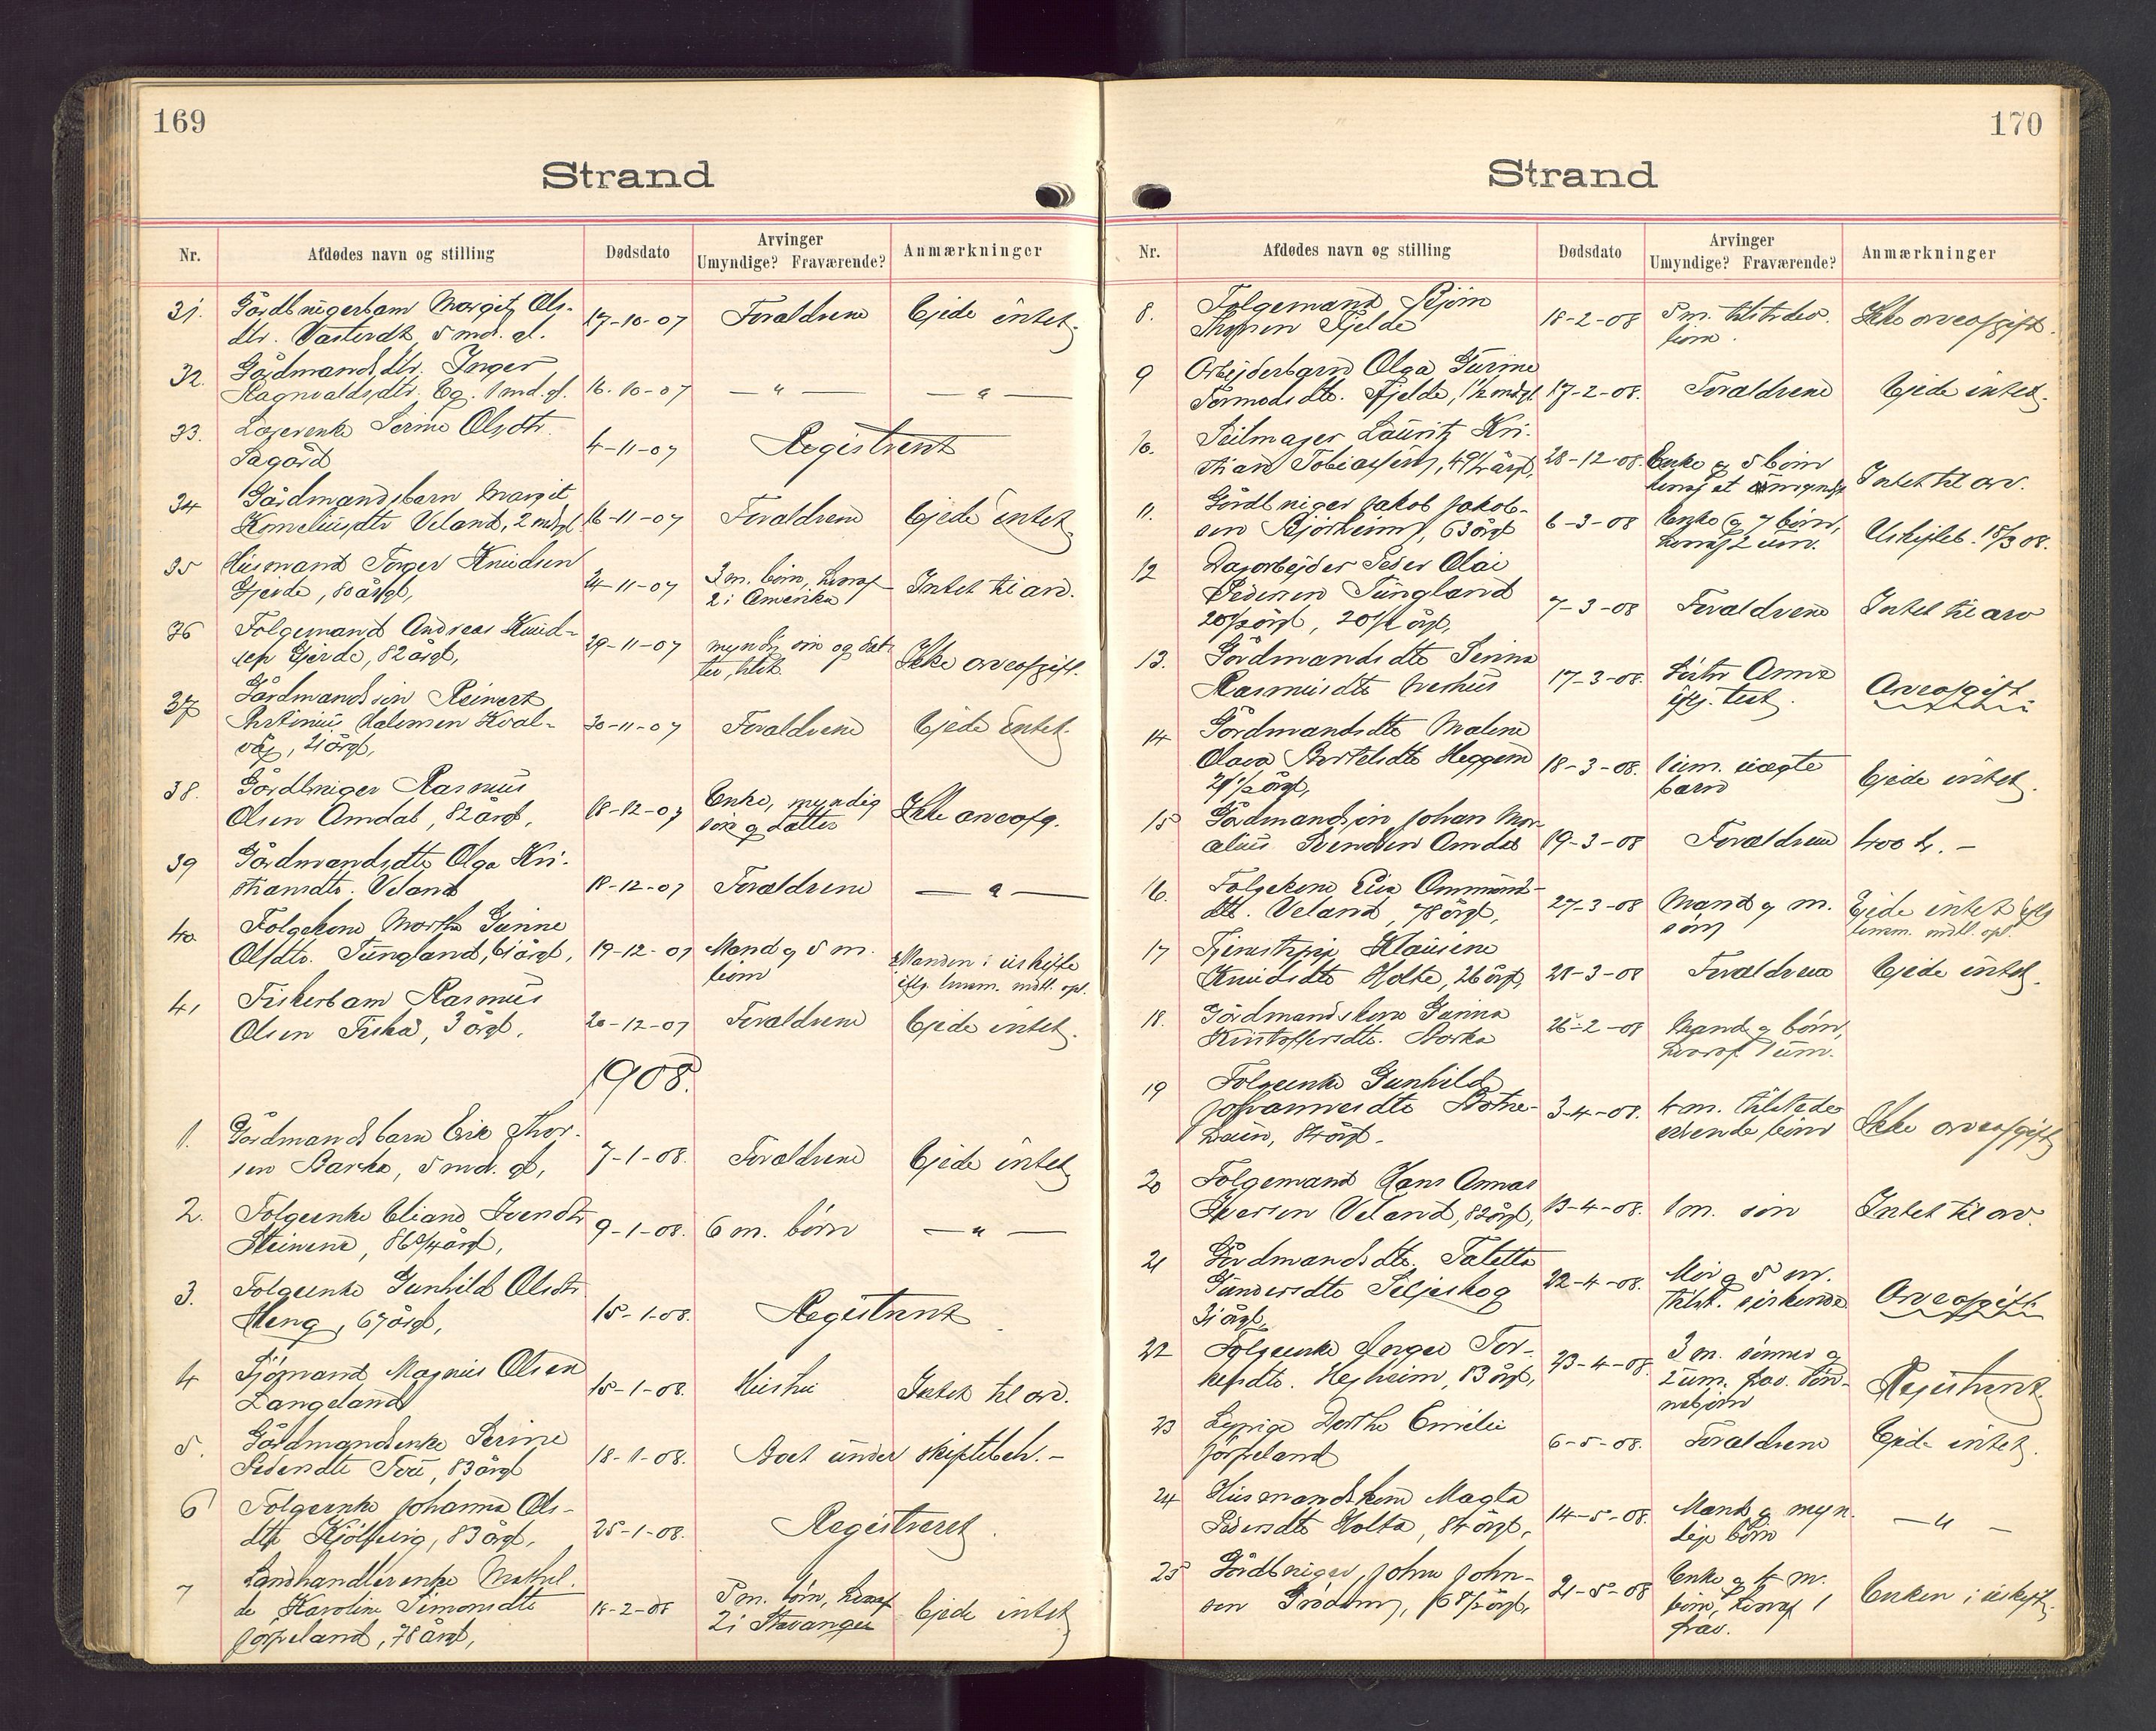 169
Strand
Nr.
Afdødes navn og stilling
Dødsdato
Arvinger
Umyndige? Fraværende?
Anmærkninger
31. Gårdbrugerbarn Margit Ols- 17-10-07 Forældrene Ejede intet.
dtr. 5 md. gl.
32. Gårdmandsdtr. Inger
Ragnvaldsdtr. Eg. 1 md. gl. 16-10-07 — " — — " —
33. Serine Olsdtr. 4-11-07 Registrert
Sagård
34 Gårdmandsbarn Margit
Korneliusdtr. Veland, 2 mdgl. 16-11-07 Forældrene Ejede intet.
35 Husmand Torger Knudsen
Gjerde, 80 årgl. 24-11-07 3 m. børn, heraf Intet til arv.
2 i Amerika
36 Følgemand Andreas Knud-
sen Gjerde, 82 årgl. 29-11-07 myndig søn og dat- Ikke arveafgift.
ter, tilst.
37 Gårdmandssøn Reinert
Halvorsen Kval-
våg, 21 årgl. 30-11-07 Forældrene Ejede intet.
38. Gårdbruger Rasmus
Olsen Amdal, 82 årgl. 18-12-07 Enke, myndig Ikke arveafg.
søn og datter
39 Gårdmandsdtr. Olga Kri-
stiansdtr. Veland 18-12-07 Forældrene — " —
40 Følgekone Marthe Gurine
Olsdtr. Tungland, 61 årgl. 19-12-07 Mand og 5 m. Manden i uskifte
børn iflg. lensm. mdtl. opl.
41 Fiskerbarn Rasmus
Olsen Fiskå, 3 årgl. 20-12-07 Forældrene Ejede intet.
1908.
1. Gårdmandsbarn Erik Thor-
sen Barka, 5 md. gl. 7-1-08. Forældrene Ejede intet
2. Følgeenke Eliane Svendsdtr.
86 3/4 årgl. 9-1-08. 6 m. børn — " —
3. Følgeenke Gunhild Olsdtr.
Meng, 67 årgl. 15-1-08. Registrert
4 Sjømand Magnus Olsen
Langeland 15-1-08. Hustru Intet til arv.
5. Gårdmandsenke Serine
Pedersdtr. Tou, 83 årgl. 18-1-08. Boet under skiftebeh. -
6 Følgeenke Johanna Ols-
dtr. 83 årgl. 25-1-08. Registreret.
7 Landhandlerenke Mathil-
de Karoline Simonsdtr.
Jørpeland, 78 årgl. 18-2-08 5 m. børn, heraf Ejede intet
2 i Stavanger
170
Strand
Nr.
Afdødes navn og stilling
Dødsdato
Arvinger
Umyndige? Fraværende?
Anmærkninger
8. Følgemand Bjørn
Thorsen Fjelde 18-2-08 5 m. tilstedev. Ikke arveafgift.
børn.
9 Arbejderbarn Olga Gurine
Tormodsdtr. Fjelde, 1 1/2 mdgl. 17-2-08. Forældrene Ejede intet.
10. Seilmager Lauritz Kri-
stian Tobiassen, 49 1/2 årgl. 28-12-08. Enke og 5 børn Intet til arv.
heraf et umyndigt
11. Gårdbruger Jakob Jakob-
sen Bjørheim, 63 årgl 6-3-08 Enke og 7 børn, Uskiftet. 18/3 08.
heraf 2 um.
12 Dagarbejder Peder Olai
Pedersen Tungland
20 1/2 årgl, 20 1/2 årgl. 7-3-08 Forældrene Intet til arv
13. Gårdmandsdtr. Serina
Rasmusdtr. 17-3-08. Søster Anna Arveafgift
iflg. test.
14 Gårdmandsdtr. Malene
Olava Bertelsdtr. Heggem 18-3-08. 1 um. uægte Ejede intet.
21 1/2 årgl. barn
15 Gårdmandssøn Johan Mar-
Svendsen Amdal 19-3-08 Forældrene 400 kr. -
16. Følgekone Ammund-
dtr. Veland, 78 årgl. 27-3-08 Mand og m. Ejede intet iflg
søn lensm. mdtl. opl.
17 Tjenstepige Klausine
Knudsdtr. Holta, 26 årgl. 28-3-08 Forældrene Ejede intet.
18. Gårdmandskone Gurina
Kristoffersdtr. Barka 26-2-08 Mand og børn,
hvoraf 1 um.
19 Følgeenke Gunhild
Johannesdtr. Botne-
84 årgl. 3-4-08. 4 m. tilstedev- Ikke arveafgift
ærende børn
20 Følgemand Hans Annas
Iversen Veland, 82 årgl. 13-4-08. 1 m. søn Intet til arv.
21 Gårdmandsdtr. Taletta
Gundersdtr. Seljeskog 22-4-08. Mor og 5 m. Arveafgift
31 årgl. tilst. søskende
22 Følgeenke Inger Tor-
kelsdtr. Hejheim, 83 årgl. 23-4-08. 3 m. sønner og Registrert.
2 um. frav. søn-
nebørn
23 Dorthe Emilie
Jørpeland 6-5-08. Forældrene Ejede intet.
24 Husmandskone Magla
Pedersdtr. Holta, 84 årgl. 14-5-08. Mand og myn- — " —
dige børn
25 Gårdbruger John John-
sen Grødem, 68 1/2 årgl. 21-5-08 Enke og 4 m. Enken i uskifte.
børn, heraf 1
frav.